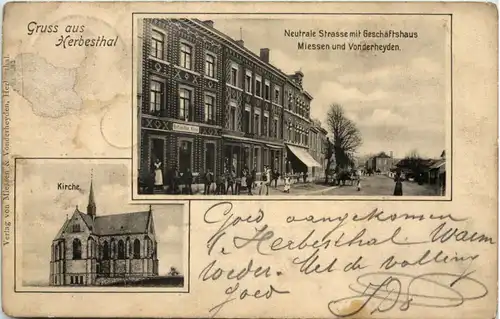 Gruss aus
Herbesthal
Neutrale Strasse mit Geschäftshaus
Miessen und Vonderheyden.
Kirche.
Verlag von Miessen & Vonderheyden, Herbesthal.
Goed aangekomen
te Herbesthal Warm
weder. Met de
goed